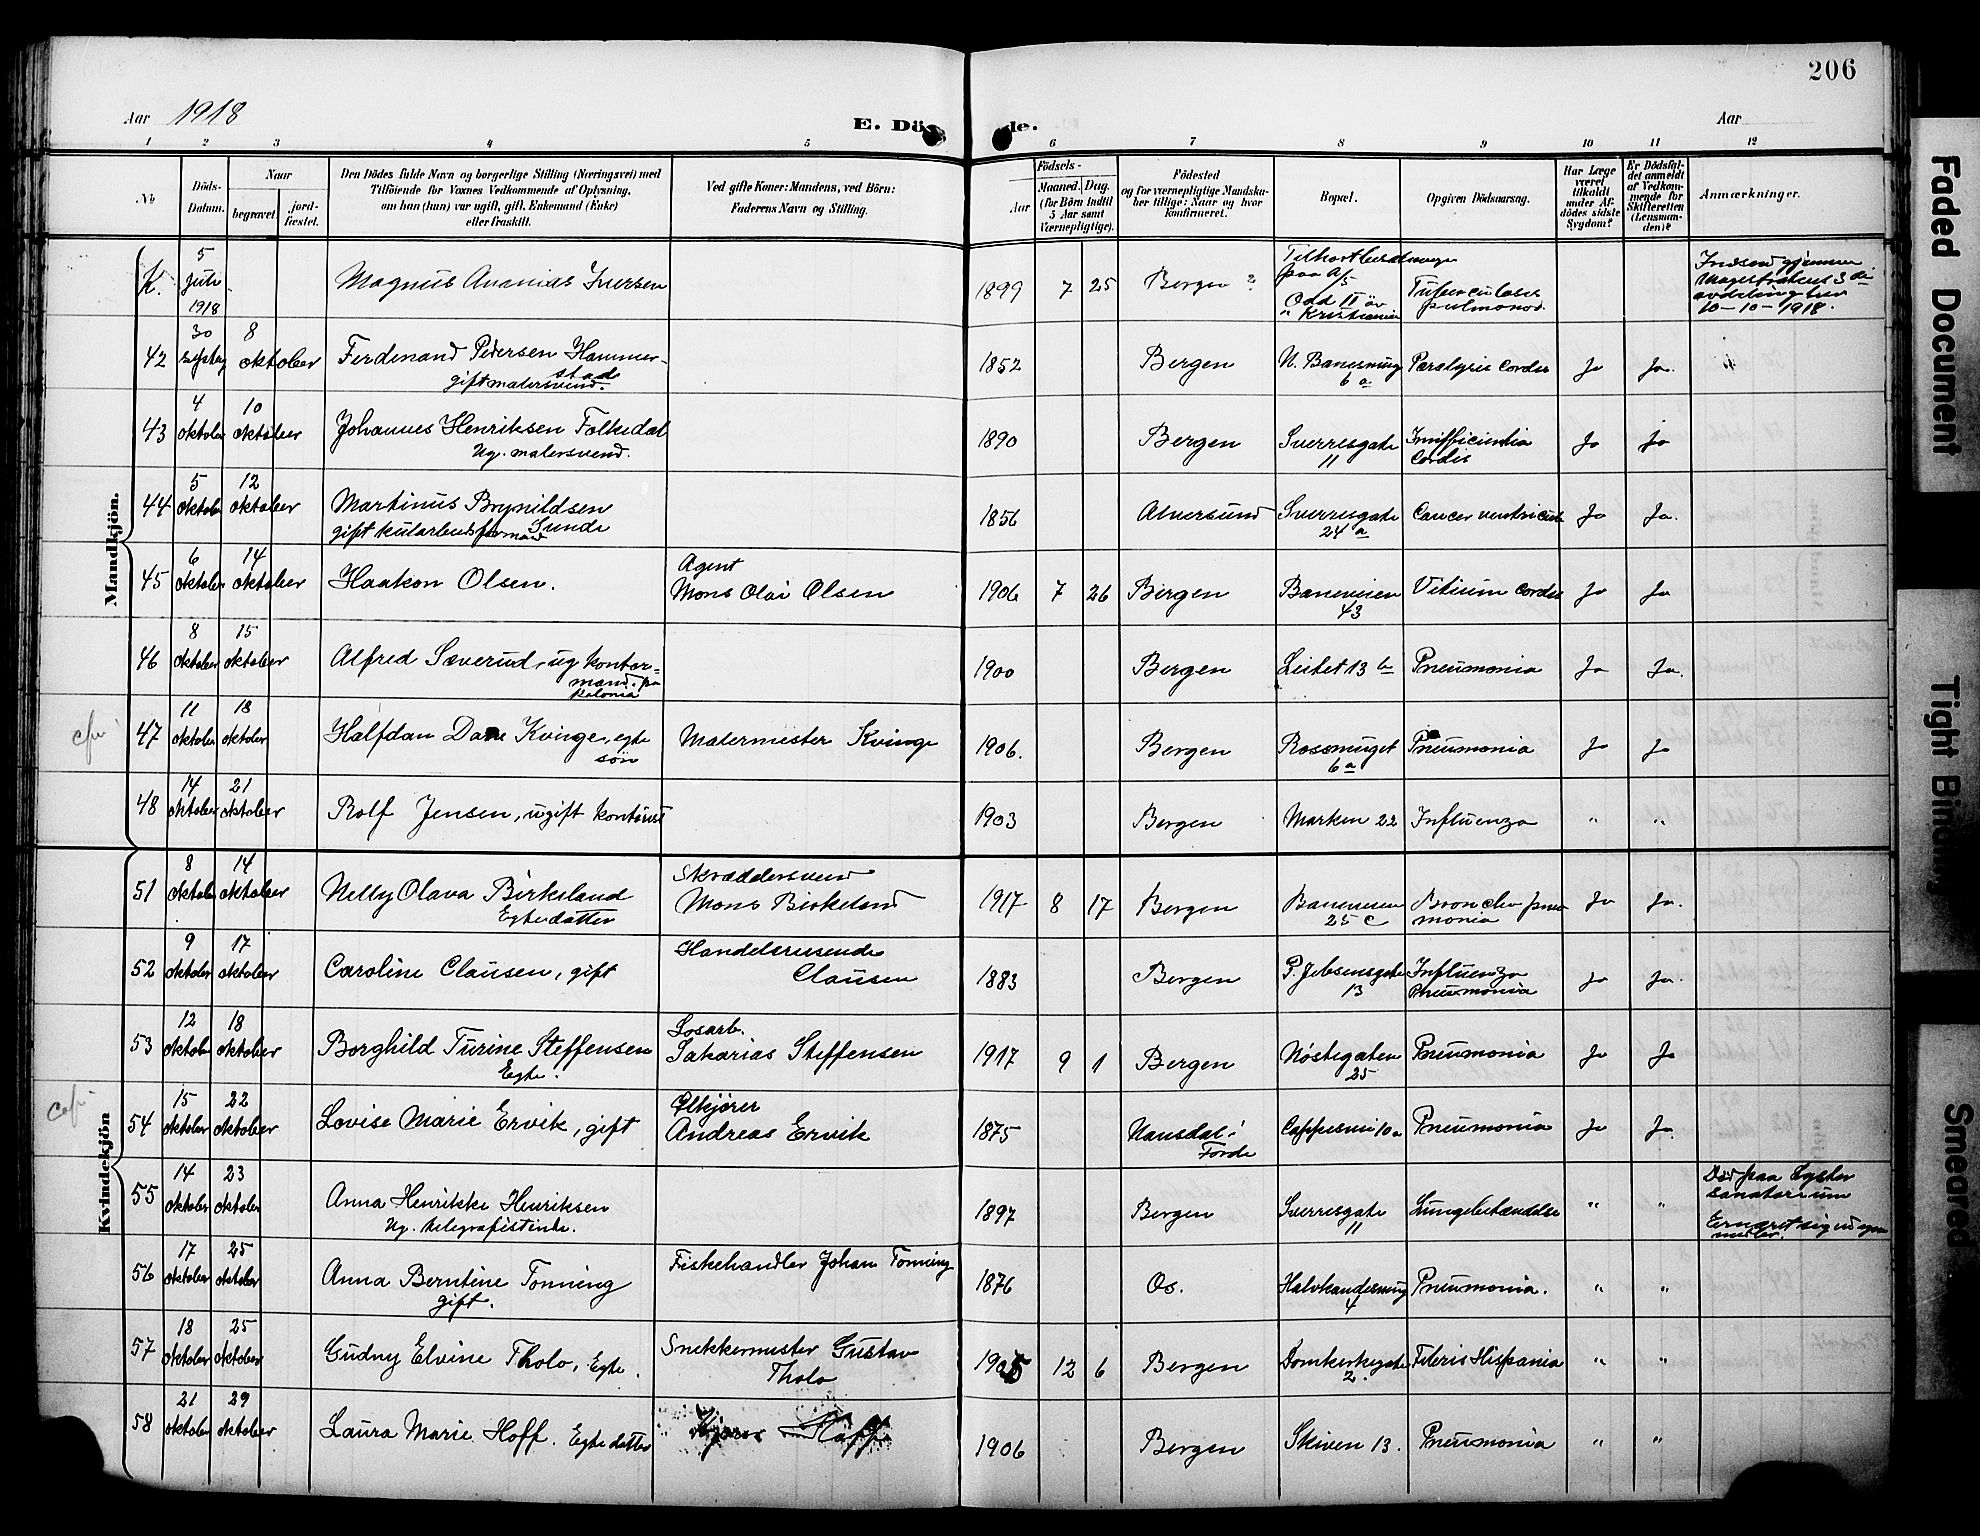 206
Aar 1918
E. Dö de.
Aar
1 2 3 4 5 6 7 8 9 10 11 12
No
Döds-
Datum.
Naar
begravet.
jord-
fæstet.
Den Dödes fulde Navn og borgerlige Stilling (Næringsvei) med
Tilföiende for Voxnes Vedkommende af Oplysning,
om han (hun) var ugift, gift, Enkemand (Enke)
eller fraskilt.
Ved gifte Koner: Mandens, ved Börn:
Faderens Navn og Stilling.
Födsels-
Aar
Maaned. Dag.
(for Börn indtil
5 Aar samt
Værnepligtige).
Födested
og for værnepligtige Mandska-
ber tillige: Naar og hvor
konfirmeret.
Bopæl.
Opgiven Dödsaarsag.
Har Læge
været
tilkaldt
under Af-
dödes sidste
Sygdom?
Er Dödsfal-
det anmeldt
af Vedkom-
mende for
Skifteretten
(Lensman-
den)?
Anmærkninger.
Mandkjön.
K. 5 Juli 1918 Magnus Ananias Iversen 1899 7 25 Bergen ?
paa
Odd II av
Kristiania
Tuberculosis
pulmonos.
10-10-1918.
42 30 septbr 8 oktober Ferdinand Pedersen Hammer-
stad
gift malersvend. 1852 Bergen 6 a Paralysis Cordis Ja Ja.
43 4 oktober 10 oktober Johannes Henriksen Folkedal
Ug. malersvend. 1890 Bergen Sverresgate
11 Insufficientia
Cordis Ja Ja
44 5 oktober 12 oktober Martinus Brynildsen
Sunde
gift 1856 Alversund Sverresgate
24 a Cancer ventriculi Ja Ja.
45 6 oktober 14 oktober Haakon Olsen. Agent
Mons Olai Olsen 1906 7 26 Bergen Baneveien
43 Vitium Cordis Ja Ja
46 8 oktober 15 oktober Alfred Sæverud, ug kontor-
mand. 1900 Bergen Leitet 13 b Pneumonia Ja Ja.
47 11 oktober 18 oktober Halfdan Kvinge, egte
søn Malermester Kvinge 1906. Bergen Rosesmuget
6 a Pneumonia Ja Ja
48 14 oktober 21 oktober Rolf Jensen, ugift kontorist 1903 Bergen Marken 22 Influenza " "
Kvindekjön
51 8 oktober 14 oktober Nelly Olava Birkeland
Egte datter Skræddersvend
Mons Birkeland 1917 8 17 Bergen Baneveien
25 c Broncho pneu
monia Ja Ja.
52 9 oktober 17 oktober Caroline Clausen, gift Handelsreisende
Clausen 1883 Bergen P. Jebsensgate
13 Influenza
Pneumonia Ja Ja.
53 12 oktober 18 oktober Borghild Turine Steffensen
Egte. Løsarb.
Sakarias Steffensen 1917 9 1 Bergen Nøstegaten
25 Pneumonia Ja Ja
54 15 oktober 22 oktober Lovise Marie Ervik, gift Ølkjører
Andreas Ervik 1875 Nausdal i
Førde Cappesvei 10 a Pneumonia Ja Ja
55 14 oktober 23 oktober Anna Henrikke Henriksen
Ug. telegrafistinde. 1897 Bergen Sverresgate
11 Lungebetændelse " " Død paa Lyster
sanatorium
Ernæret sig ved egne
midler.
56 17 oktober 25 oktober Anna Berntine Tonning
gift. Fiskehandler Johan Tonning 1876 Os. Halvkandesmug
4 Pneumonia. " "
57 18 oktober 25 oktober Gudny Elvine Tholo, Egte. Snekkermester Gustav
Tholo 1905 12 6 Bergen Domkirkegate
2. Febris Hispania " "
58 21 oktober 29 oktober Laura Marie Hoff. Egte datter Hoff 1906 Bergen Skiven 13. Pneumonia " "
Faded Document
Tight Binding
Smeared